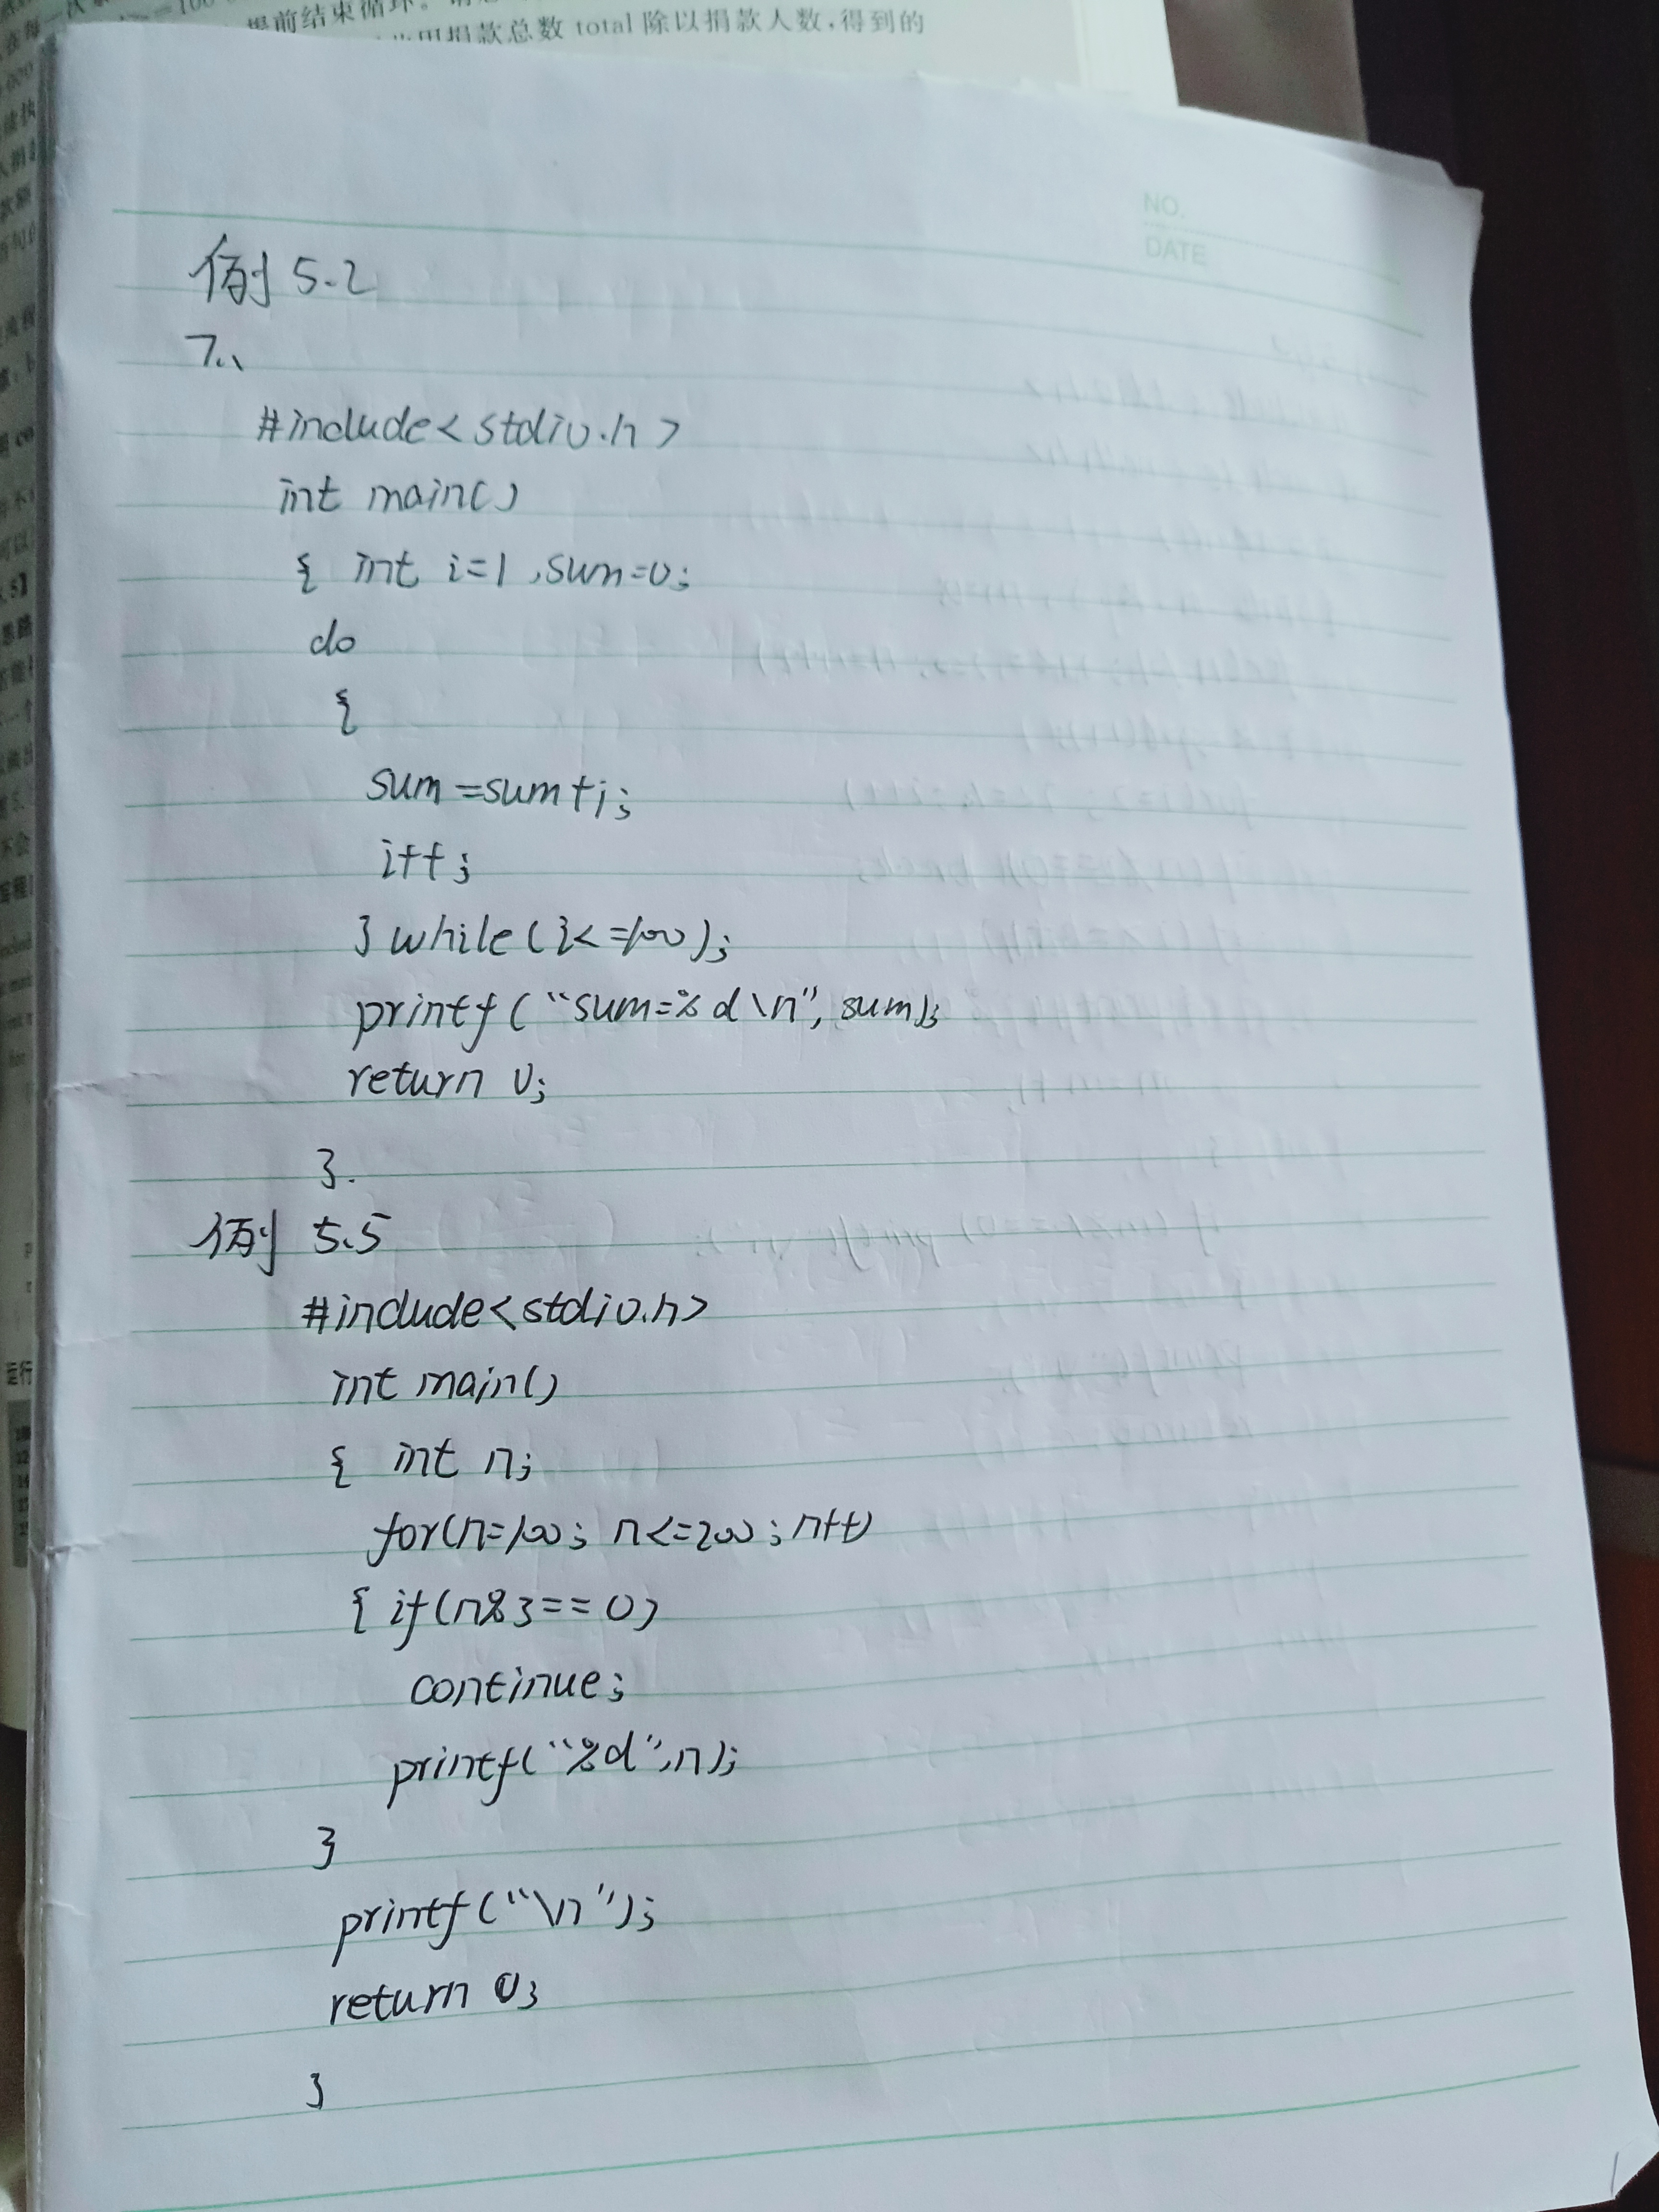 提前结束循环。
捐款总数 total 除以捐款人数,得到的
NO.
DATE
例 5.2
7、
#include<stdio.h>
int main()
{ int i=1,sum=0;
do
{
sum=sum+i;
i++;
}while(i<=100);
printf("sum=%d\n",sum);
return 0;
}.
例 5.5
#include<stdio.h>
int main()
{ int n;
for(n=100; n<=200; n++)
{ if(n%3==0)
continue;
printf("%d",n);
}
printf("\n");
return 0;
}